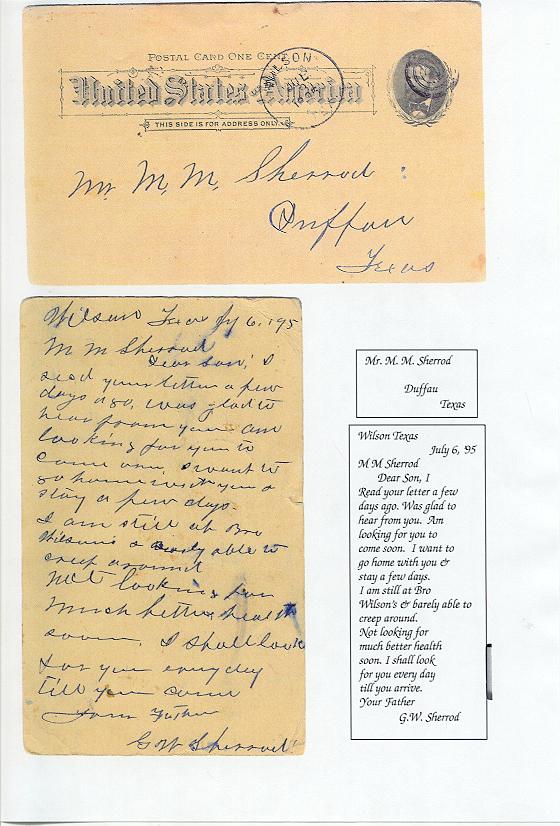 POSTAL CARD ONE CENT
United States America
THIS SIDE IS FOR ADDRESS ONLY
WILSON
JUL
Mr. M. M. Sherrod
Duffau
Texas
Wilson Texas Jy 6, 195
M M Sherrod
Dear Son, I
read your letter a few
days ago, was glad to
hear from you am
looking for you to
come soon, I want to
go home with you &
stay a few days.
I am still at Bro
Wilson's & barely able to
creep around
Not looking for
much better health
soon, I shall look
for you every day
till you come
Your Father
G W Sherrod
Mr. M. M. Sherrod
Duffau
Texas
Wilson Texas
July 6, '95
M M Sherrod
Dear Son, I
Read your letter a few
days ago. Was glad to
hear from you. Am
looking for you to
come soon. I want to
go home with you &
stay a few days.
I am still at Bro
Wilson's & barely able to
creep around.
Not looking for
much better health
soon. I shall look
for you every day
till you arrive.
Your Father
G.W. Sherrod